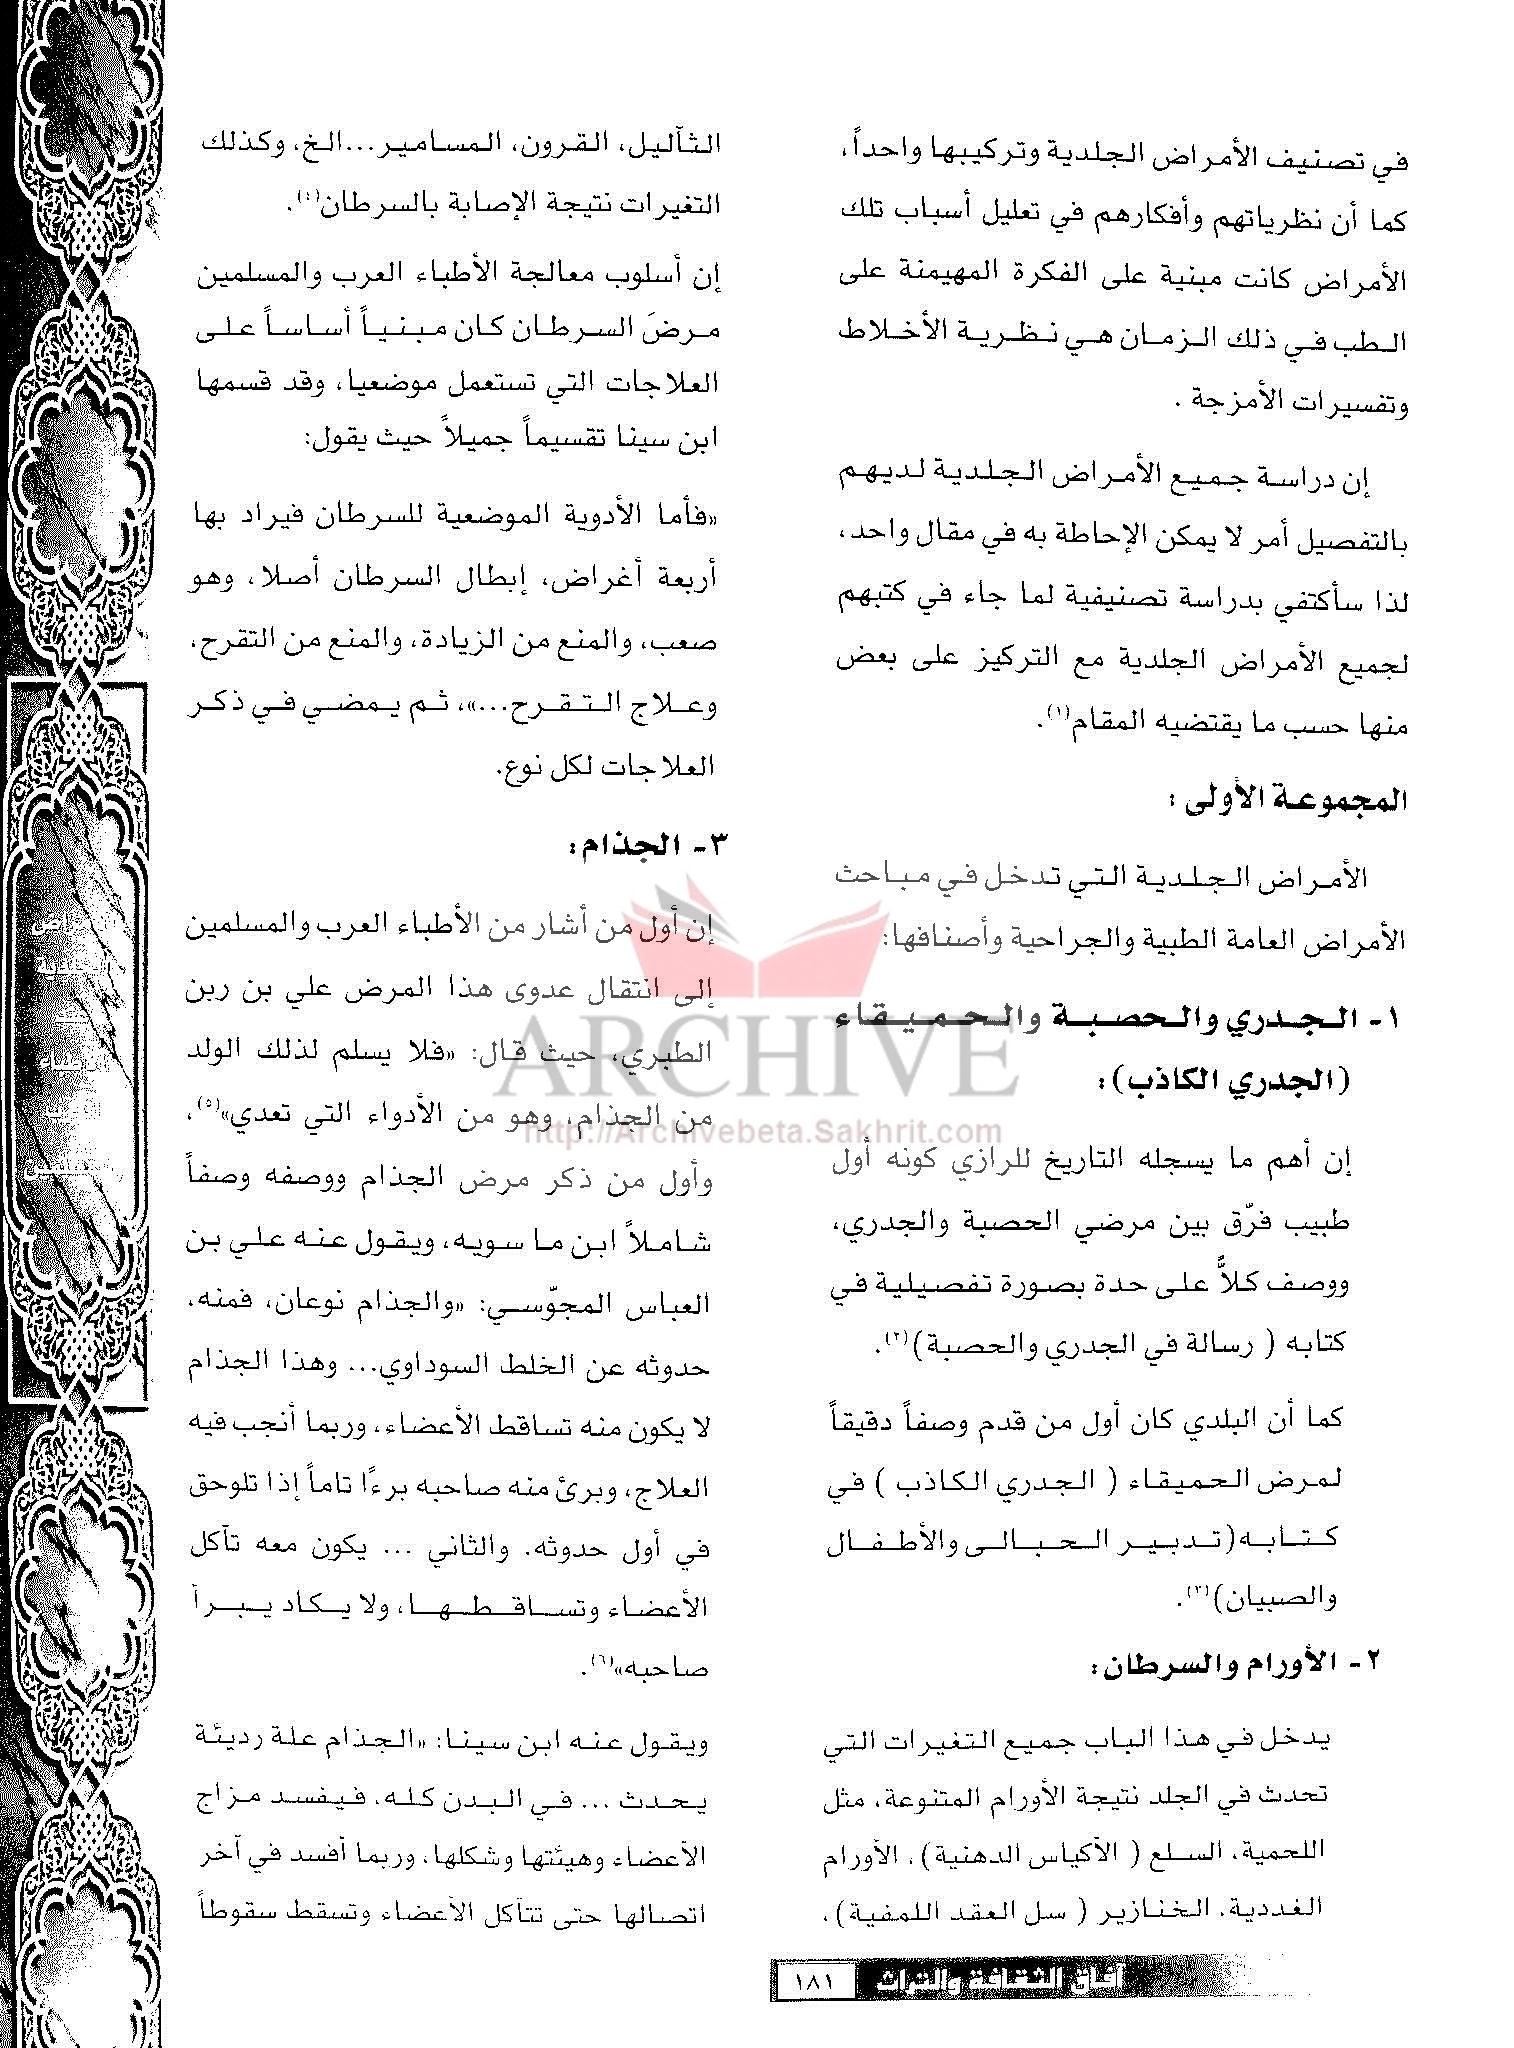 في تصنيف الأمراض الجلدية وتركيبها واحداً،
كما أن نظرياتهم وأفكارهم في تعليل أسباب تلك
الأمراض كانت مبنية على الفكرة المهيمنة على
الطب في ذلك الزمان هي نظرية الأخلاط
وتفسيرات الأمزجة .
إن دراسة جميع الأمراض الجلدية لديهم
بالتفصيل أمر لا يمكن الإحاطة به في مقال واحد،
لذا سأكتفي بدراسة تصنيفية لما جاء في كتبهم
لجميع الأمراض الجلدية مع التركيز على بعض
منها حسب ما يقتضيه المقام(١).
المجموعة الأولى :
الأمراض الجلدية التي تدخل في مباحث
الأمراض العامة الطبية والجراحية وأصنافها:
١- الجدري والحصبة والحميقاء
(الجدري الكاذب):
إن أهم ما يسجله التاريخ للرازي كونه أول
طبيب فرّق بين مرضي الحصبة والجدري،
ووصف كلاًّ على حدة بصورة تفصيلية في
كتابه ( رسالة في الجدري والحصبة)(٢).
كما أن البلدي كان أول من قدم وصفاً دقيقاً
لمرض الحميقاء ( الجدري الكاذب ) في
كتابه(تدبير الحبالى والأطفال
والصبيان)(٣).
٢- الأورام والسرطان:
يدخل في هذا الباب جميع التغيرات التي
تحدث في الجلد نتيجة الأورام المتنوعة، مثل
اللحمية، السلع ( الأكياس الدهنية)، الأورام
الغددية، الخنازير ( سل العقد اللمفية)،
الثآليل، القرون، المسامير...الخ، وكذلك
التغيرات نتيجة الإصابة بالسرطان(٤).
إن أسلوب معالجة الأطباء العرب والمسلمين
مرضَ السرطان كان مبنياً أساساً على
العلاجات التي تستعمل موضعيا، وقد قسمها
ابن سينا تقسيماً جميلاً حيث يقول:
«فأما الأدوية الموضعية للسرطان فيراد بها
أربعة أغراض، إبطال السرطان أصلا، وهو
صعب، والمنع من الزيادة، والمنع من التقرح،
وعلاج التقرح...»، ثم يمضي في ذكر
العلاجات لكل نوع.
٣- الجذام:
إن أول من أشار من الأطباء العرب والمسلمين
إلى انتقال عدوى هذا المرض علي بن ربن
الطبري، حيث قال: «فلا يسلم لذلك الولد
من الجذام، وهو من الأدواء التي تعدي»(٥)،
وأول من ذكر مرض الجذام ووصفه وصفاً
شاملاً ابن ما سويه، ويقول عنه علي بن
العباس المجوّسي: «والجذام نوعان، فمنه،
حدوثه عن الخلط السوداوي... وهذا الجذام
لا يكون منه تساقط الأعضاء، وربما أنجب فيه
العلاج، وبرئ منه صاحبه برءًا تاماً إذا تلوحق
في أول حدوثه. والثاني ... يكون معه تآكل
الأعضاء وتساقطها، ولا يكاد يبرأ
صاحبه»(٦).
ويقول عنه ابن سينا: «الجذام علة رديئة
يحدث ... في البدن كله، فيفسد مزاج
الأعضاء وهيئتها وشكلها، وربما أفسد في آخر
اتصالها حتى تتآكل الأعضاء وتسقط سقوطاً
ARCHIVE
http://Archivebeta.Sakhrit.com
آفاق الثقافة والتراث ١٨١